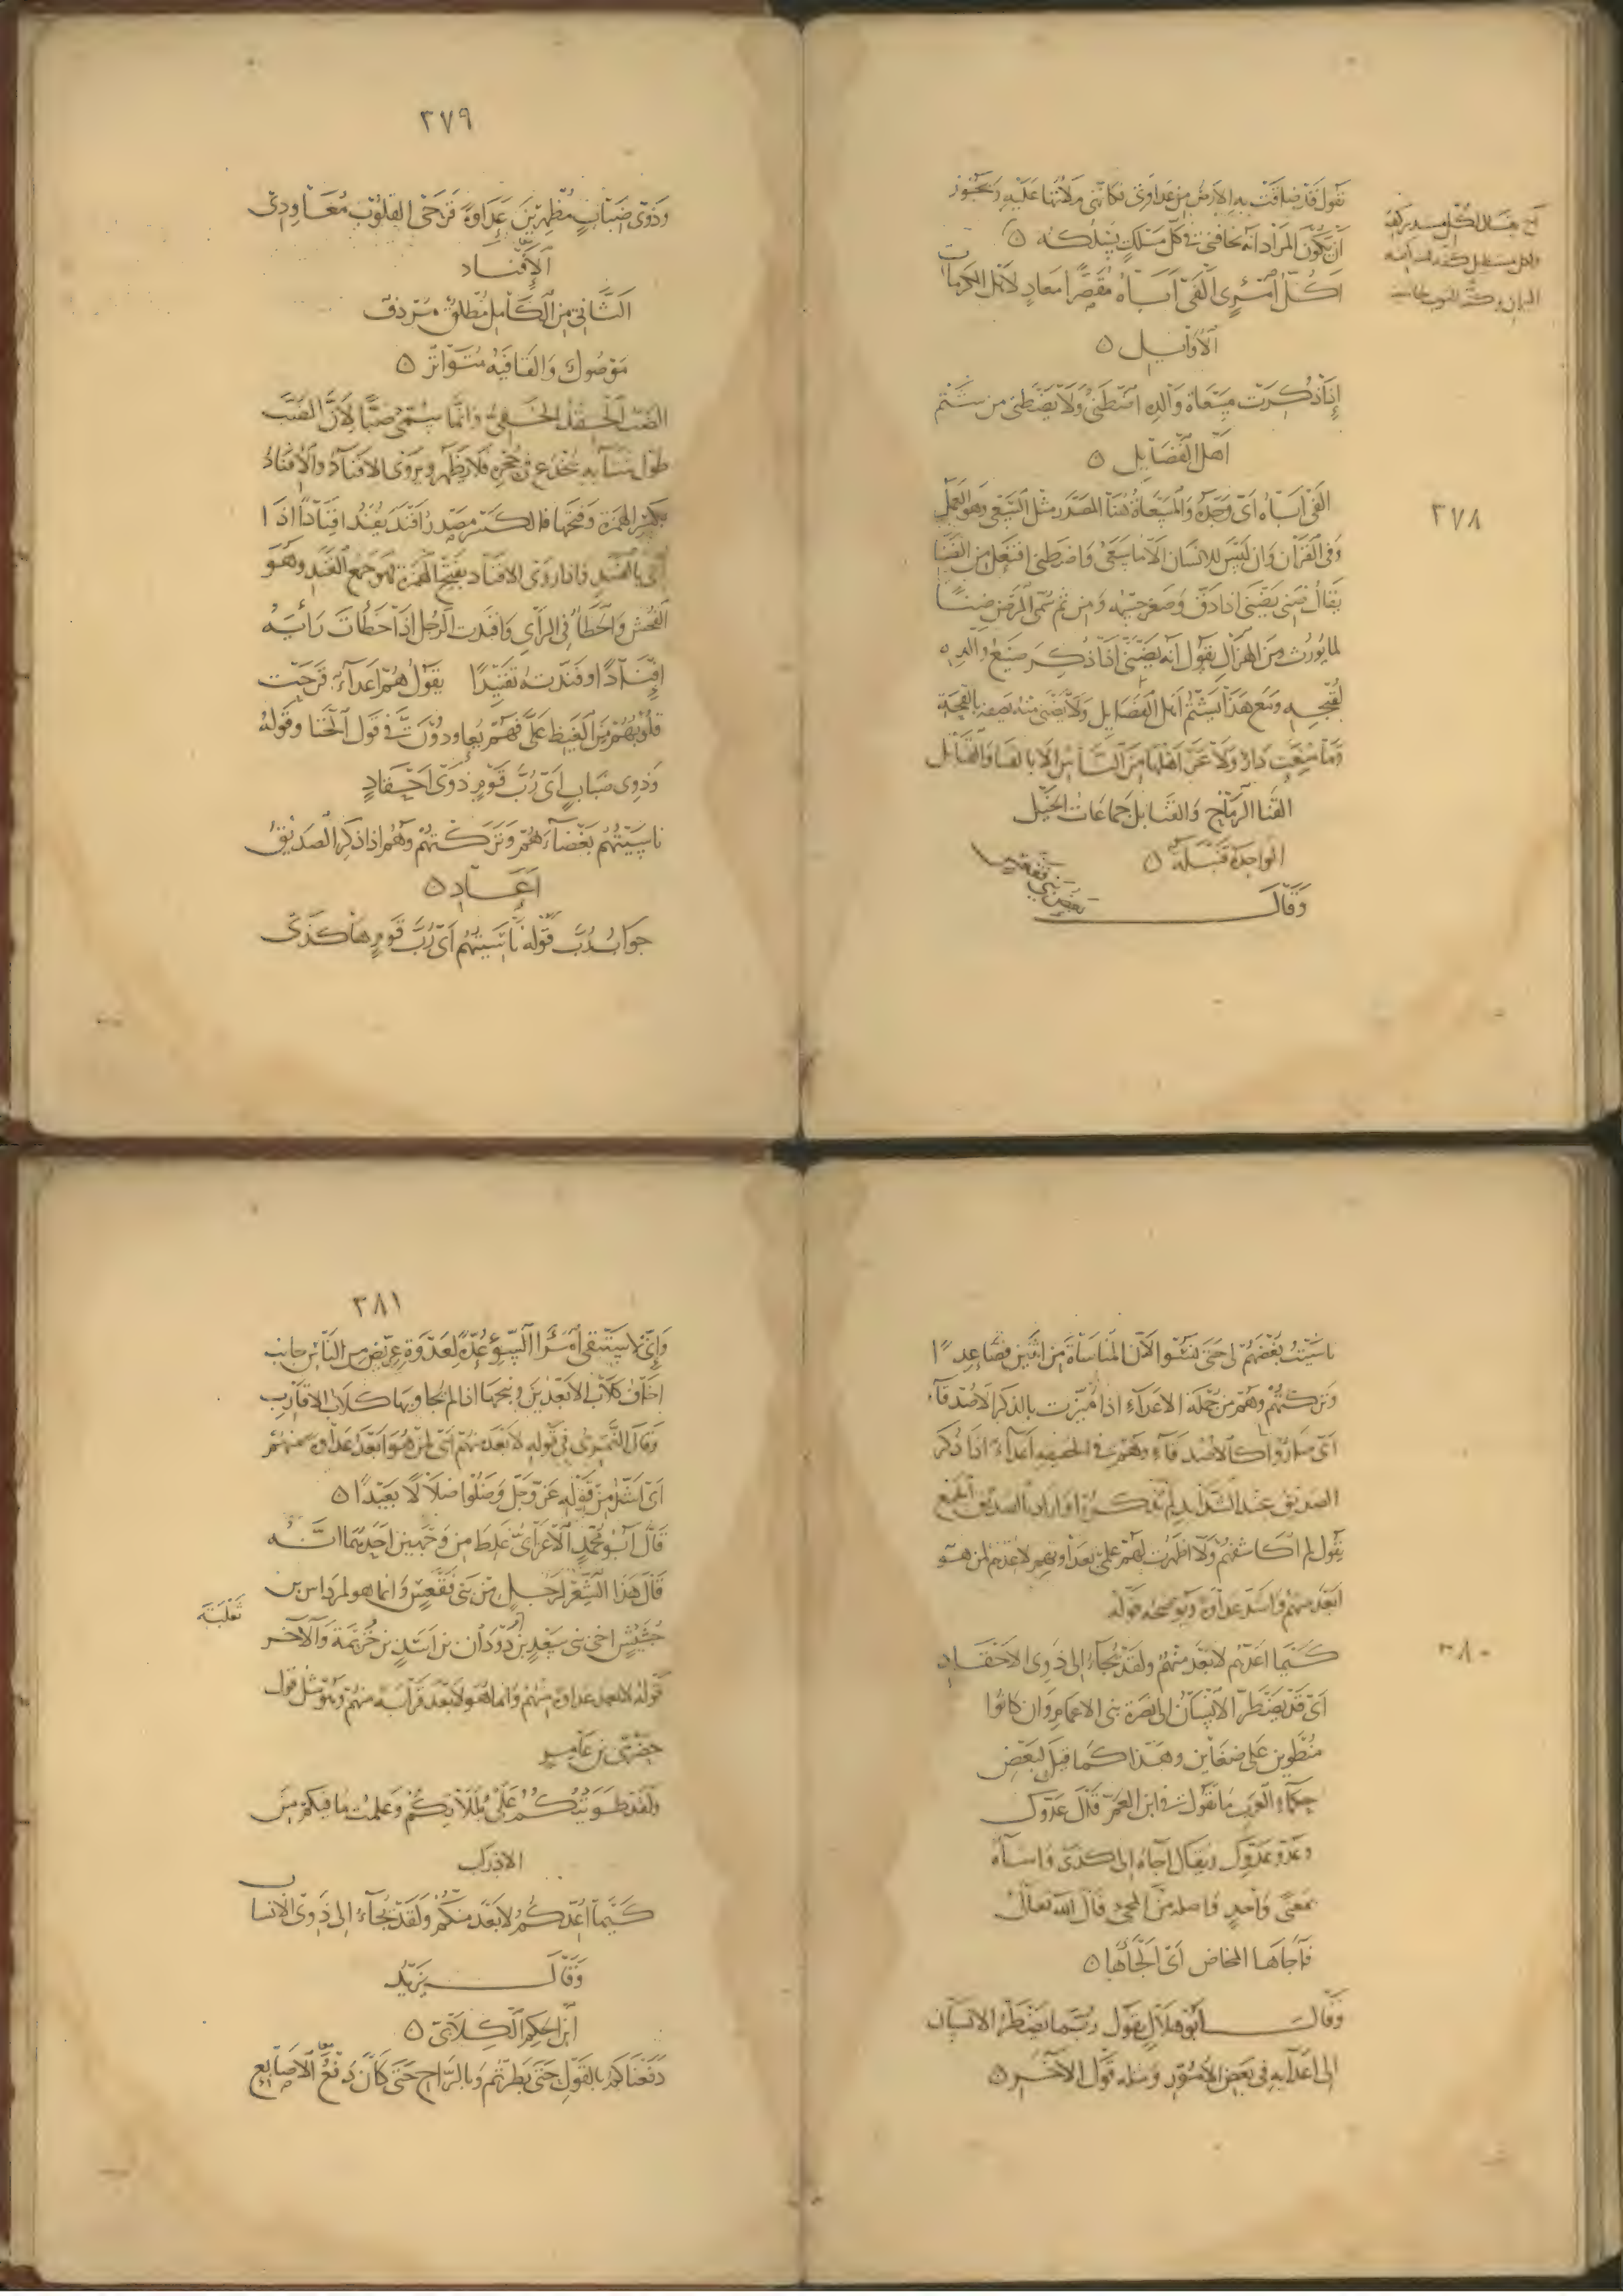 تقول قد ضاقت به الارض من عداوتى فكانى ملأتها عليه ويجوز
ان يكون المراد انه يخافنى فى كل مسلك يسلكه ٥
اكل امرئ الفى اباه مقصرا معاد لاهل المكرمات
الاوائل ٥
اذا ذكرت مسعاة والده اضطنى ولا يضطنى من شتم
اهل الفضايل ٥
٣٧٨
الفى اباه اى وجده والمسعاة هنا المصدر مثل السعى وهو العمل
وفى القرآن وان ليس للانسان الا ما سعى واضطنى افتعل من الضنا
يقال ضنى يضنى اذا دق وصغر جسمه ومن ثم سمى المرض ضنى
لما يورث من الهزال يقول انه يضنى اذا ذكر صنع والده
لقبحه ومع هذا يشتم اهل الفضايل ولا يضنى منه يصفه بالقحة
وما منعت دار ولا عز اهلها من الناس الا بالقنا والقنابل
القنا الرماح والقنابل جماعات الخيل
الواحدة قنبلة ٥
وقال بعض بنى فقعس
٣٧٩
وذوى ضباب مظهرين عداوة قرحى القلوب معاودى
الافناد
الثانى من الكامل مطلق مردف
موصول والقافيه متواتر ٥
الضب الحقد الخفى وانما سمى ضبا لان الضب
طول شتائه يخدع فى جحره فلا يظهر ويروى الافناد والافناد
بكسر الهمزة وفتحها فالكسر مصدر افند يفند افنادا اذا
اتى بالفند واذا روى الافناد بفتح الهمزة فهو جمع الفند وهو
الفحش والخطأ فى الرأى وافندت الرجل اذا خطأت رأيه
افنادا وفندته تفنيدا يقول هم اعداء قرحت
قلوبهم من الغيظ على فهم يعاودون فى قول الخنا وقوله
وذوى ضباب اى رب قوم ذوى احقاد
ناسيتهم بغضاءهم وتركتهم وهم اذا ذكر الصديق
اعاد ٥
جواب رب قوله ناسيتهم اى رب قوم هاكذى
ناسيت بغضهم لى حتى نسوا لان المناساة من اثنين فصاعدا
وتركتهم وهم من جملة الاعداء اذا ميزت بالذكر الاصدقاء
اى صاروا كالاصدقاء وهم فى الحقيقه اعداء اذا ذكر
الصديق عند الشدايد لم يذكروا واراد بالصديق الجمع
يقول لم اكاشفهم ولا اظهرت لهم علمى بعداوتهم لاعدهم لمن هو
ابعد منهم واشد عداوة ويوضحه قوله
٣٨٠
كيما اعدهم لابعد منهم ولقد يجاء الى ذوى الاحقاد
اى قد يضطر الانسان الى نصرة بنى الاعمام وان كانوا
منطوين على ضغاين وهذا كما قيل لبعض
حكماء العرب ما تقول فى ابن العم قال عدوك
وعدو عدوك ويقال اجاه الى كذى واساه
بمعنى واحد واصله من المجىء قال الله تعالى
فاجاها المخاض اى الجاها ٥
وقال ابو هلال يقول ربما يضطر الانسان
الى اعدآيه فى بعض الامور ومثله قول الآخر ٥
٣٨١
وانى لاستبقى امرأ السوء عدة لعدوة عريض من الناس جانب
اخاف كلاب الابعدين ونبحها اذا لم تجاوبها كلاب الاقارب
وقال النمرى فى قوله لابعد منهم اى لمن هو ابعد عداوة منهم
اى اشد من قوله عز وجل وضلوا ضلالا بعيدا ٥
قال ابو محمد الاعرابى غلط من وجهين احدهما انه
قال هذا الشعر لرجل من بنى فقعس وانما هو لمرداس بن
جشيش اخى بنى سعد بن ثعلبة بن دودان بن اسد بن خزيمة والآخر
قوله لابعد عداوة منهم وانما هو لابعد قرابة منهم وهو مثل قول
حضرمى بن عامر
ولقد طويتكم على بللاتكم وعلمت ما فيكم من
الاذراب
كيما اعدكم لابعد منكم ولقد يجاء الى ذوى الانساب
وقال يزيد
ابن الحكم الكلابى ٥
دفعناكم بالقول حتى بطرتم وبالراح حتى كان دفع الاصابع